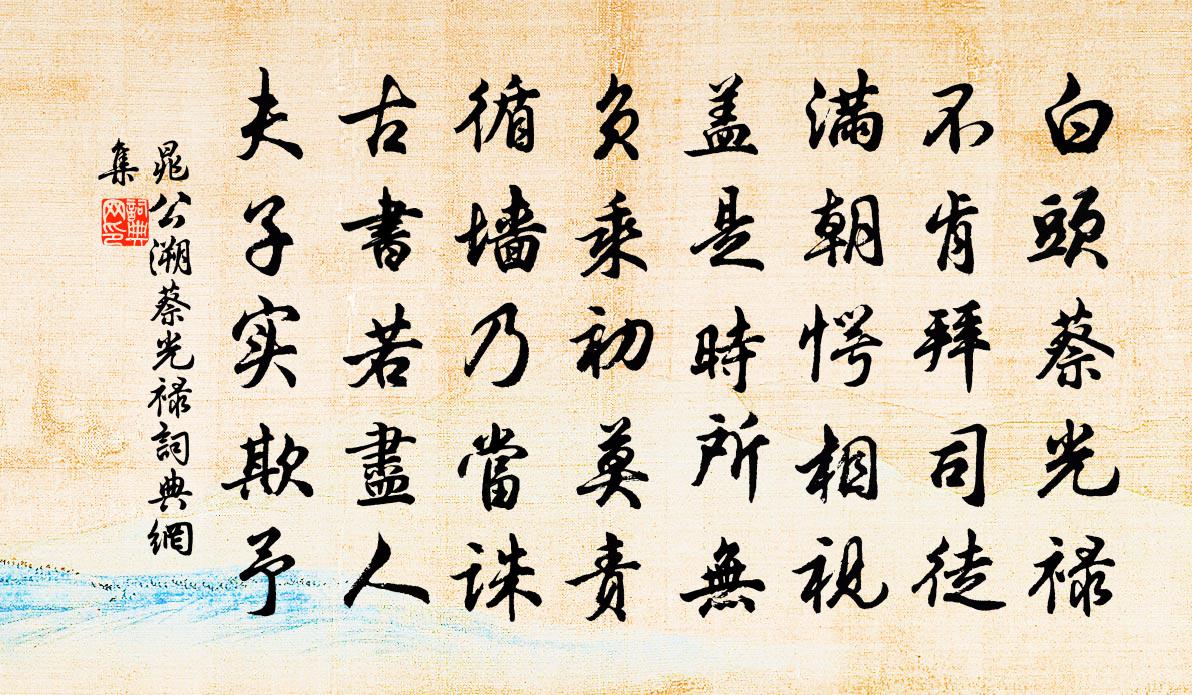 白頭蔡光禄
不肯拜司徒
满朝愕相視
盖是時所無
负乘初莫责
循墙乃當誅
古書若盡人
夫子实欺予
晁公溯蔡光禄詞典網
集
詞典
网印